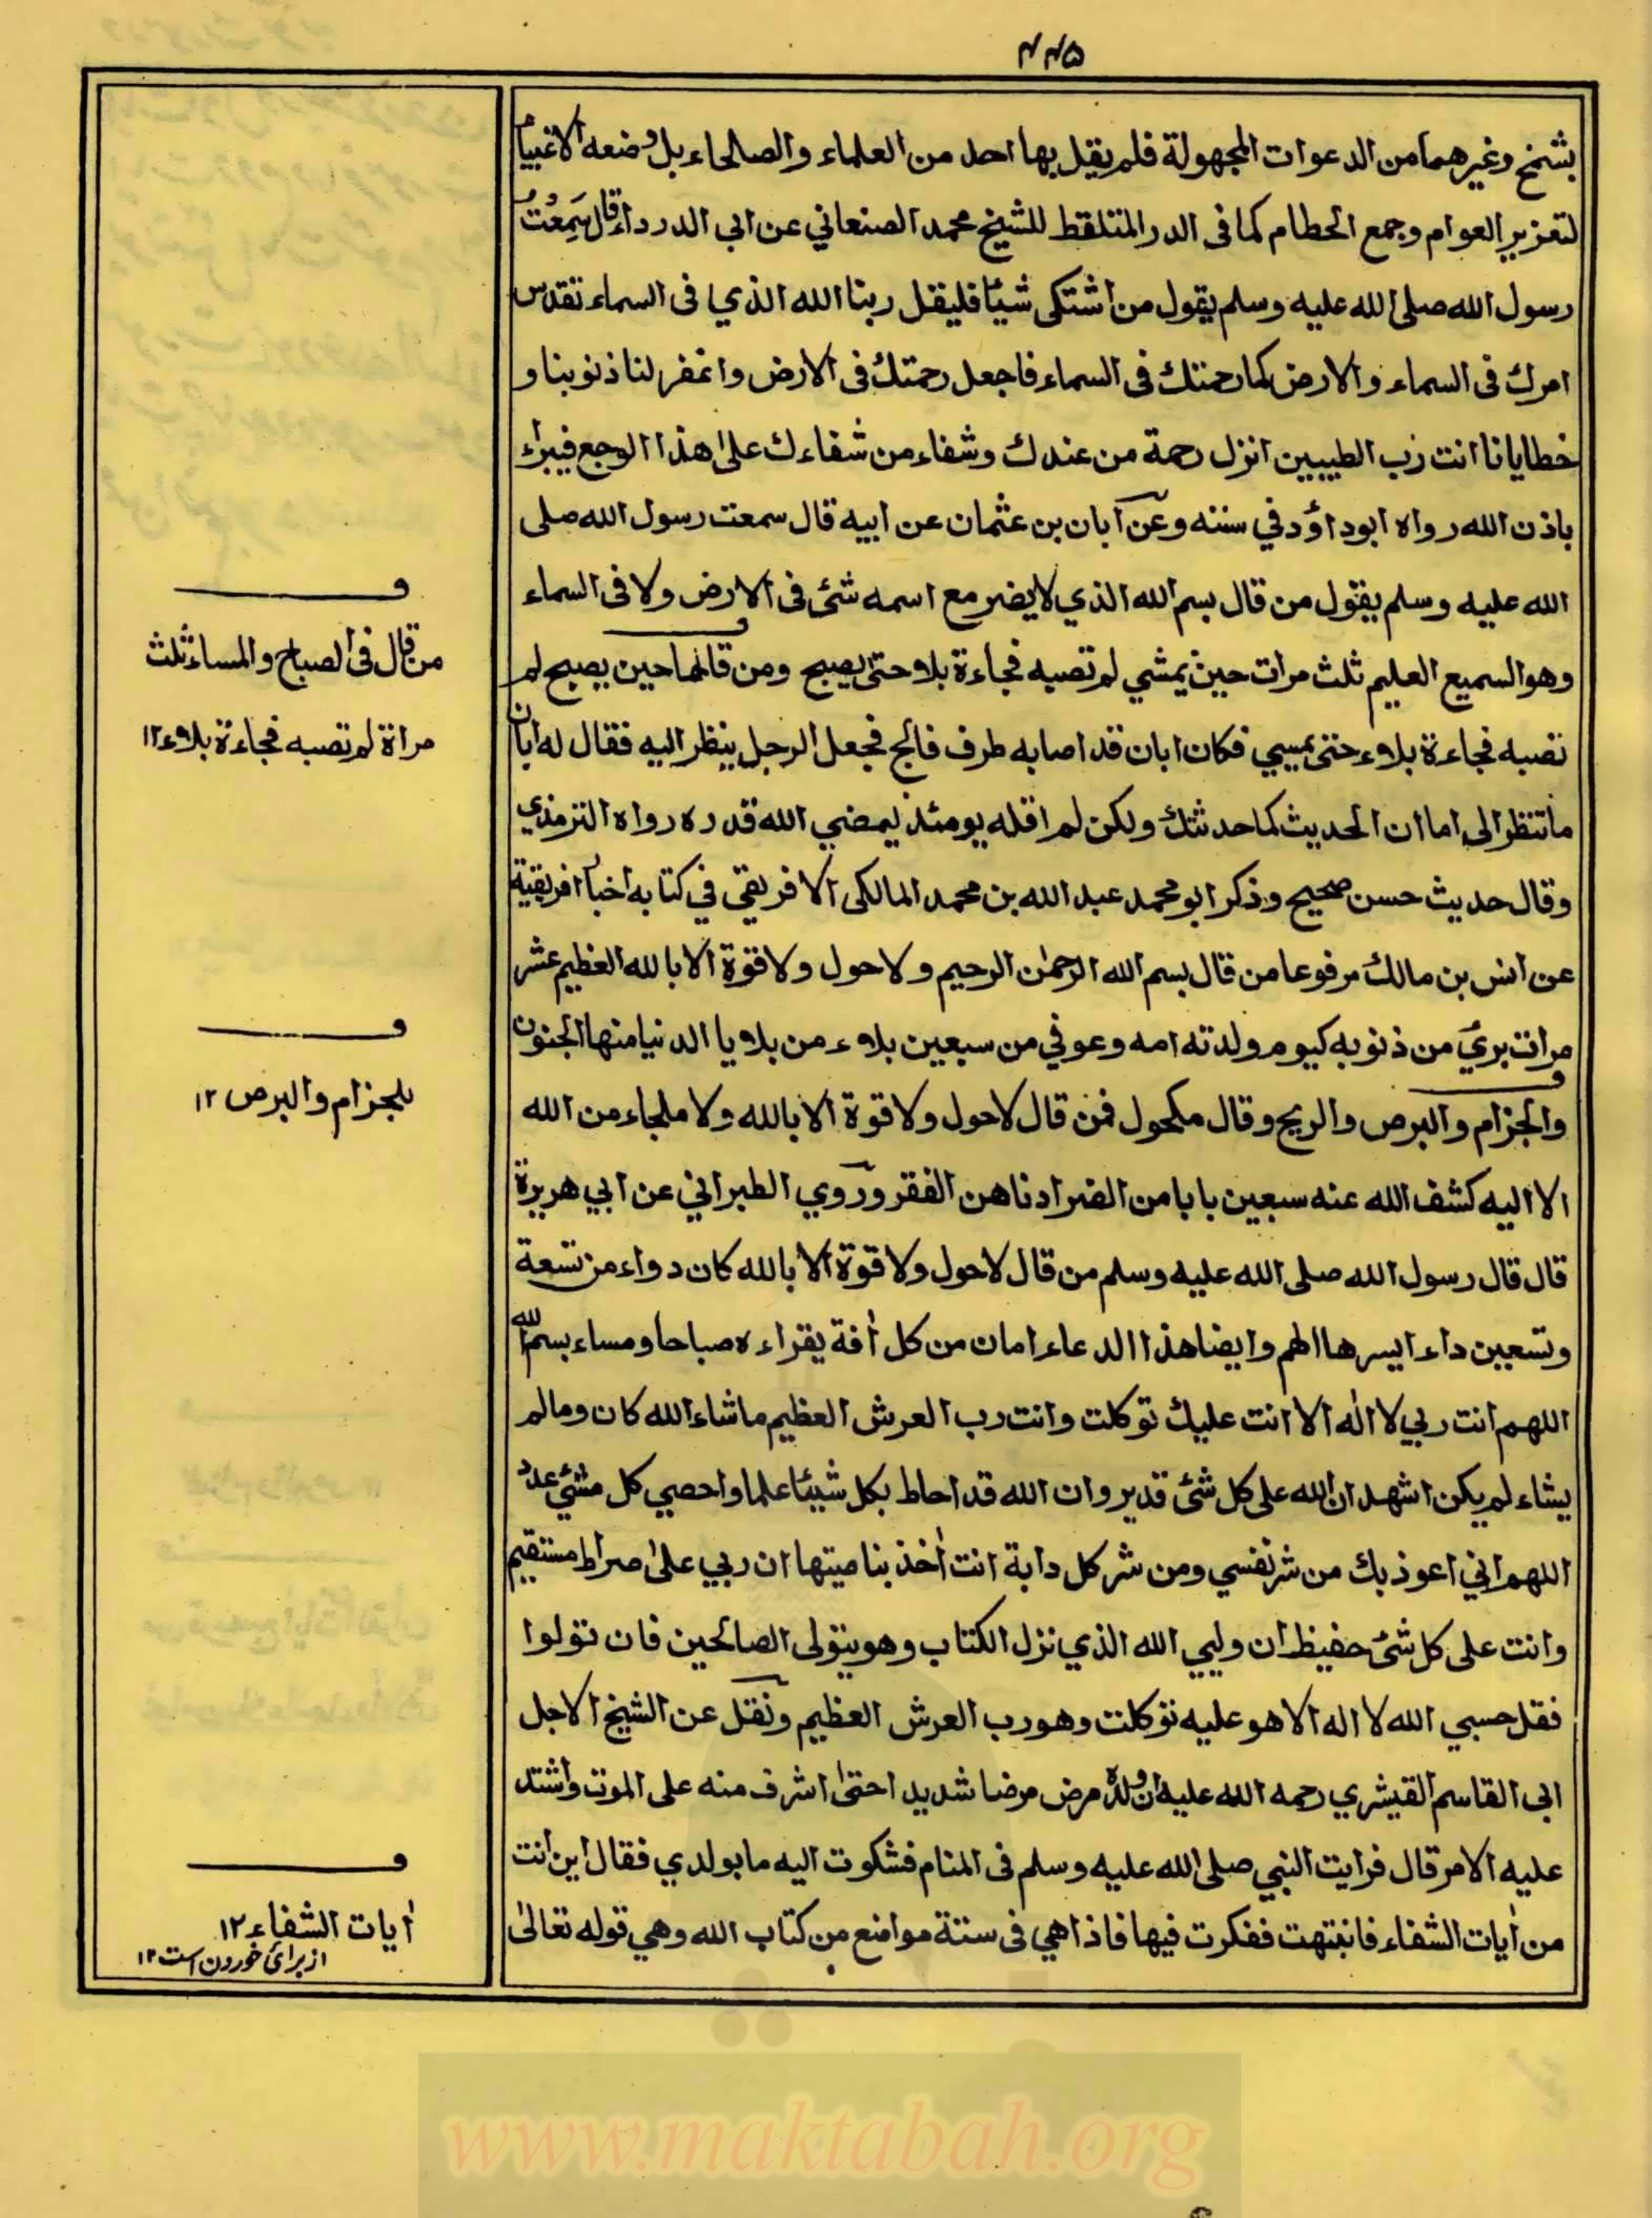 ٢٢٥
بشمخ وغيرهما من الدعوات المجهولة فلم يقل بها احد من العلماء والصالحاء بل وضعه الاغبياء
لتعزير العوام وجمع الحطام كما في الدر المتلقط للشيخ محمد الصنعاني عن ابي الدرداء قال سَمِعْتُ
رسول الله صلى الله عليه وسلم يقول من اشتكى شيئا فليقل ربنا الله الذي في السماء تقدس
امرك في السماء والارض كما رحمتك في السماء فاجعل رحمتك في الارض واغفر لنا ذنوبنا و
خطايانا انت رب الطيبين انزل رحمة من عندك وشفاء من شفاءك على هذا الوجع فيبراء
باذن الله رواه ابو داؤد في سننه وعن آبان بن عثمان عن ابيه قال سمعت رسول الله صلى
الله عليه وسلم يقول من قال بسم الله الذي لا يضر مع اسمه شئ في الارض ولا في السماء
وهو السميع العليم ثلث مرات حين يمشي لم تصبه فجاءة بلاء حتى يصبح ومن قالها حين يصبح لم
تصبه فجاءة بلاء حتى يمسي فكان ابان قد اصابه طرف فالج فجعل الرجل ينظر اليه فقال له ابان
ما تنظر الى اما ان الحديث كما حدثتك ولكن لم اقله يومئذ ليمضي الله قدره رواه الترمذي
وقال حديث حسن صحيح وذكر ابو محمد عبد الله بن محمد المالكى الافريقي في كتابه اخبار افريقية
عن انس بن مالك مرفوعا من قال بسم الله الرحمٰن الرحيم ولا حول ولا قوة الا بالله العظيم عشر
مرات برئ من ذنوبه كيوم ولدته امه وعوفي من سبعين بلاء من بلايا الدنيا منها الجنون
والجزام والبرص والريح وقال مكحول فمن قال لا حول ولا قوة الا بالله ولا ملجاء من الله
الا اليه كشف الله عنه سبعين بابا من الضر ادناهن الفقر وروي الطبراني عن ابي هريرة
قال قال رسول الله صلى الله عليه وسلم من قال لا حول ولا قوة الا بالله كان دواء من تسعة
وتسعين داء ايسرها الهم وايضا هذا الدعاء امان من كل اٰفة يقراءه صباحا ومساء بسم الله
اللهم انت ربي لا الٰه الا انت عليك توكلت وانت رب العرش العظيم ما شاء الله كان وما لم
يشاء لم يكن اشهد ان الله على كل شئ قدير وان الله قد احاط بكل شيئا علما واحصي كل شئ عدد
اللهم اني اعوذ بك من شر نفسي ومن شر كل دابة انت اٰخذ بناصيتها ان ربي على صراط مستقيم
وانت على كل شئ حفيظ ان وليي الله الذي نزل الكتاب وهو يتولى الصالحين فان تولوا
فقل حسبي الله لا اله الا هو عليه توكلت وهو رب العرش العظيم ونقل عن الشيخ الاجل
ابى القاسم القيشري رحمه الله عليه ان ولده مرض مرضا شديدا حتى اشرف منه على الموت واشتد
عليه الامر قال فرايت النبي صلى الله عليه وسلم فى المنام فشكوت اليه ما بولدي فقال اين انت
من اٰيات الشفاء فانتبهت ففكرت فيها فاذا هي فى ستة مواضع من كتاب الله وهي قوله تعالىٰ
ف
من قال فى الصباح والمساء ثلث
مراة لم تصبه فجاءة بلاء ١٢
ف
للجزام والبرص ١٢
ف
اٰيات الشفاء ١٢
از برائ خوردن است ١٢
www.maktabah.org